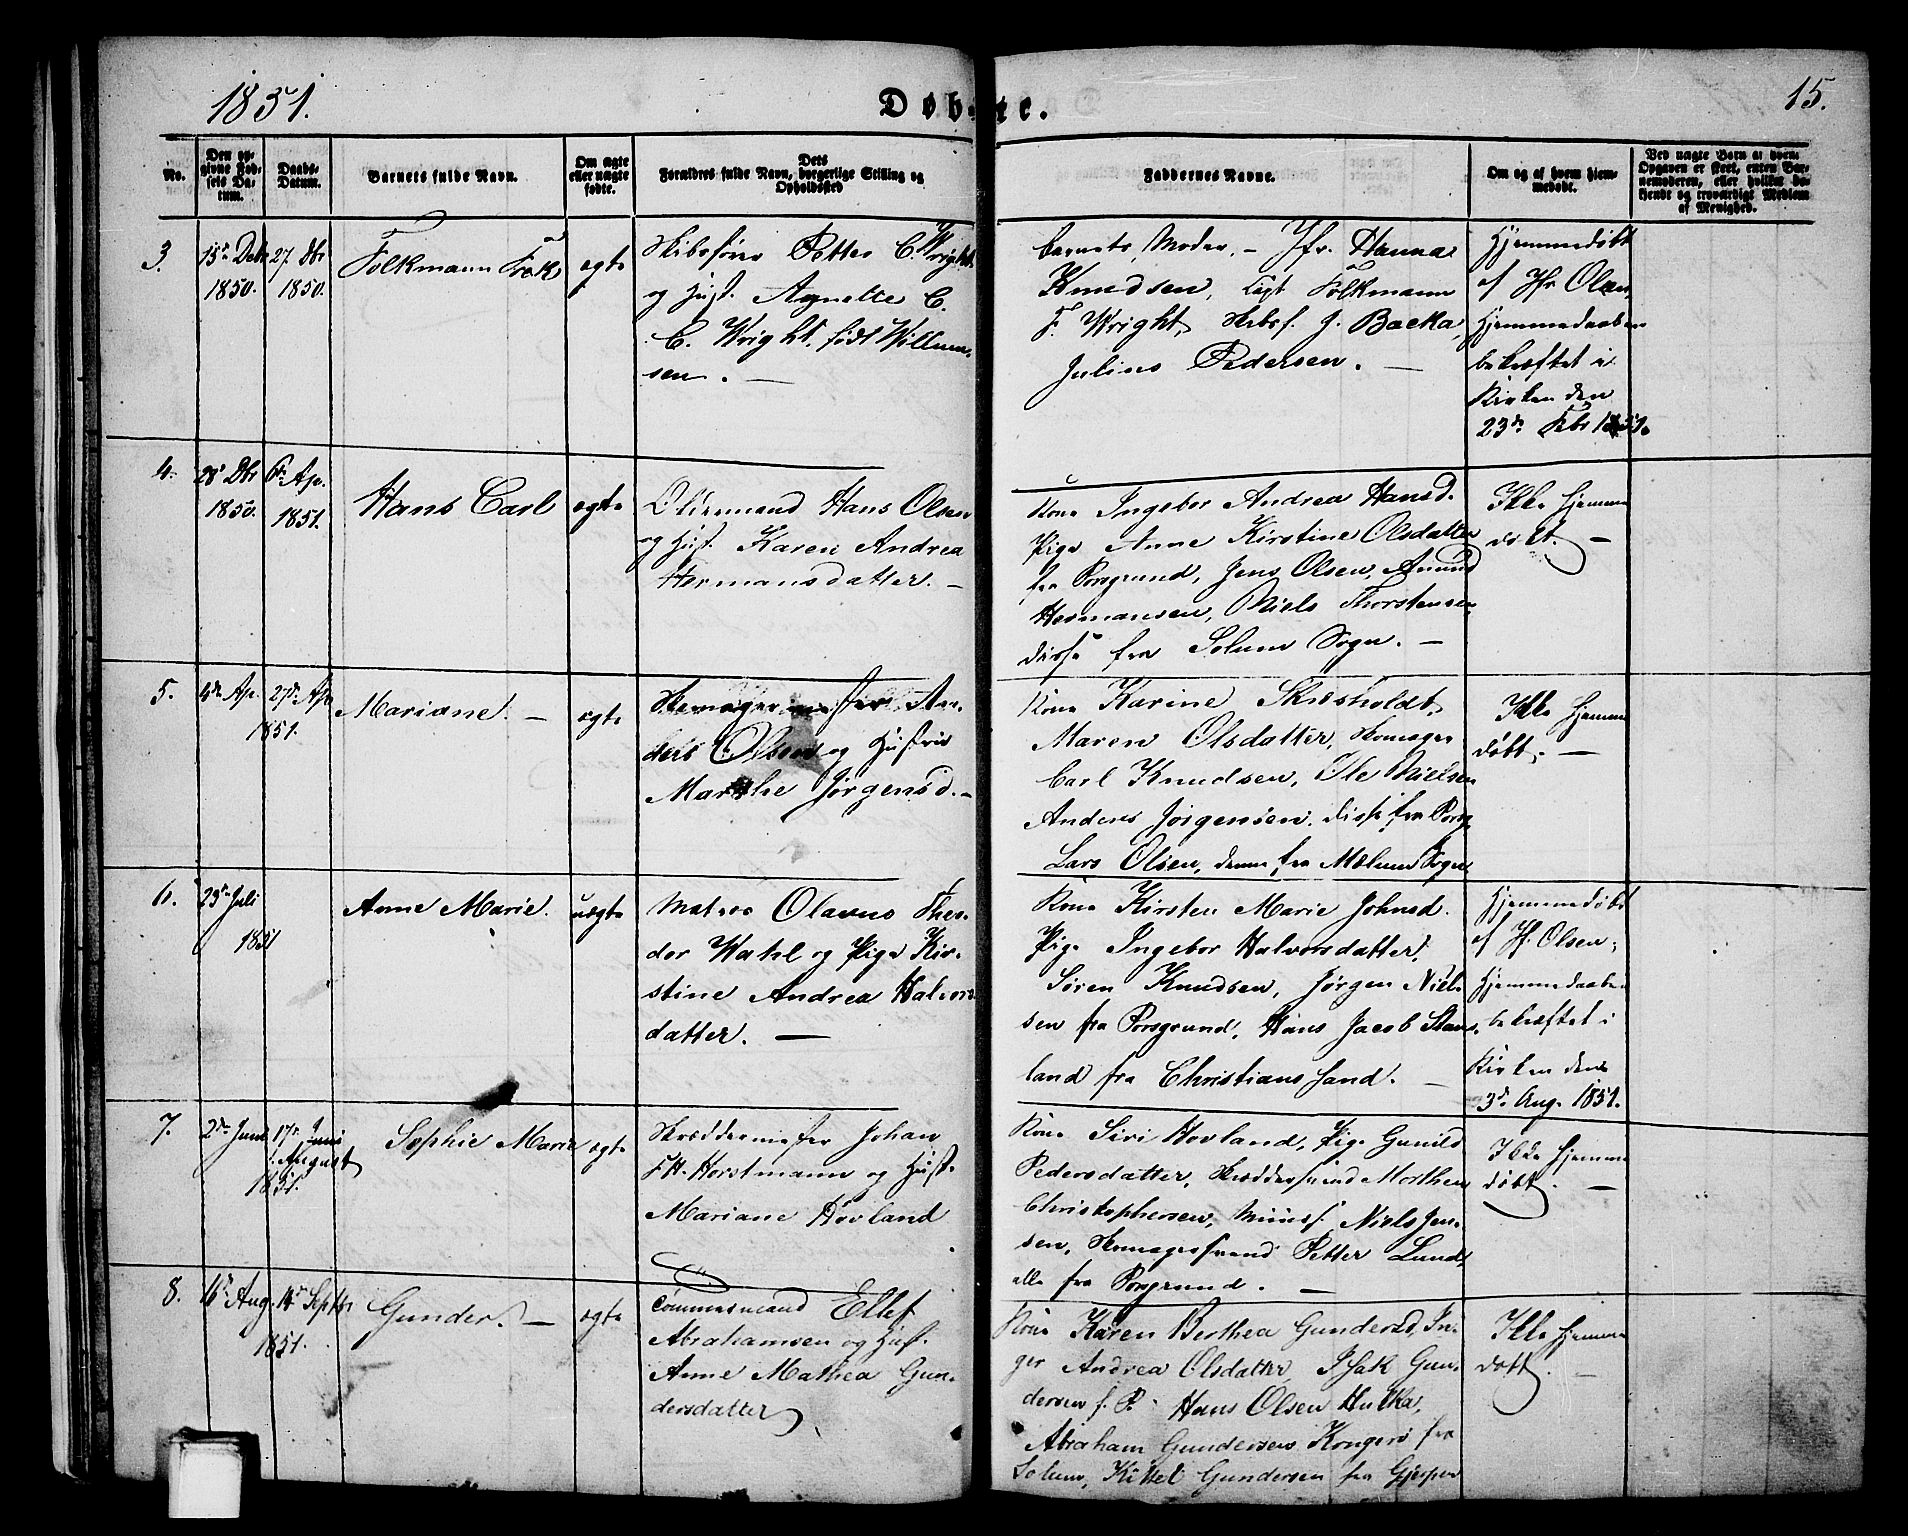 1851.
Døbte.
15.
No.
Den op-
givne Fød-
sels Da-
tum.
Daabs-
Datum.
Barnets fulde Navn.
Om ægte
eller uægte
fødte.
Forældres fulde Navn, borgerlige Stilling og
Dets
Opholdssted
Faddernes Navne.
Om og af hvem hjem-
medøbt.
Ved uægte Børn af hvem
Opgaven er skeet, enten Bar-
nemoderen, eller hvilket be-
kjendt og troværdigt Medlem
af Menighed.
3.
15de Debr
1850.
27. Dbr
1850.
Folkmann
ægte
Skibsfører Petter C. Wright
og Hust. Agnette C.
C. Wright, født Willum-
sen. —
Barnets Moder, — Jfr. Hanna
Knudsen, Capt Folkmann
F. Wright, Skibsf. J. Backa,
Julius Pedersen. —
Hjemmedøbt
af Hr Olsen,
Hjemmedaaben
bekræftet i
Kirken den
23de Febr 1851.
4.
28de Dbr
1850.
6te Ap.
1851.
Hans Carl
ægte
Oldermand Hans Olsen
og Hust. Karen Andrea
Hermansdatter. —
Kone Ingebor Andrea Hansd.
Pige Anne Kirstine Olsdatter
fra Porsgrund, Jens Olsen, Amund
Hermansen, Niels Thorstensen
disse fra Solum Sogn. —
Ikke hjemme
døbt. —
5.
4de Ap.
27de Ap.
1851.
Mariane. —
ægte
Skomagermester An-
ders Olsen og Hustrue
Marthe Jørgensd. —
Kone Karine Skræsholdt,
Maren Olsdatter, Skomager
Carl Knudsen, Ole Nielsen
Anders Jørgensen, disse fra Porsg.
Lars Olsen, denne fra Mælum Sogn
Ikke hjemme
døbt. —
6.
23de Juli
1851
Anne Marie.
uægte
Matros Olavus Theo-
dor Wahl og Pige Kir-
stine Andrea Halvors-
datter. —
Kone Kirsten Marie Johnsd.
Pige Ingebor Halvorsdatter,
Søren Knudsen, Jørgen Niel-
sen fra Porsgrund, Hans Jacob Stans-
land fra Christiansand. —
Hjemmedøbt
af Hr Olsen;
Hjemmedaaben
bekræftet i
Kirken den
3de Aug. 1851.
7.
2den Juni
17de Juni
August
1851.
Sophie Marie
ægte
Skræddermester Johan
F. H. Horstmann og Hust.
Mariane Hovland
Kone Siri Hovland, Pige Gunild
Pedersdatter, Skræddersvend Morthen
Christophersen, Muurs. Niels Jen-
sen, Skomagersvend Petter Lund,
alle fra Porsgrund. —
Ikke hjemme
døbt. —
8.
16de Aug.
14de Septbr
1851.
Gunder. —
ægte
Tømmermand Ellef
Abrahamsen og Hust.
Anne Mathea Gun-
dersdatter.
Kone Karen Berthea Gundersd, In-
ger Andrea Olsdatter, Isak Gun-
dersen f. P. Hans Olsen Hulka,
Abraham Gundersen Kongerø fra
Solum, Kittel Gundersen fra Gjerpen
Ikke hjemme
døbt. —